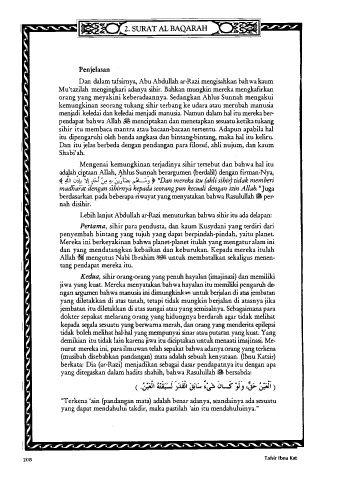 2. SURAT AL BAQARAH
Penjelasan
Dan dalam tafsirnya, Abu Abdullah ar-Razi mengisahkan bahwa kaum
Mu'tazilah mengingkari adanya sihir. Bahkan mungkin mereka mengkafirkan
orang yang meyakini keberadaannya. Sedangkan Ahlus Sunnah mengakui
kemungkinan seorang tukang sihir terbang ke udara atau merubah manusia
menjadi keledai dan keledai menjadi manusia. Namun dalam hal itu mereka ber-
pendapat bahwa Allah ﷻ menciptakan dan menetapkan sesuatu ketika tukang
sihir itu membaca mantra atau bacaan-bacaan tertentu. Adapun apabila hal
itu dipengaruhi oleh benda angkasa dan bintang-bintang, maka hal itu keliru.
Dan itu jelas berbeda dengan pandangan para filosuf, ahli nujum, dan kaum
Shabi'ah.
Mengenai kemungkinan terjadinya sihir tersebut dan bahwa hal itu
adalah ciptaan Allah, Ahlus Sunnah berargumen (berdalil) dengan firman-Nya,
﴿ وَمَا هُم بِضَارِّينَ بِهِ مِنْ أَحَدٍ إِلَّا بِإِذْنِ اللَّهِ ﴾ "Dan mereka itu (ahli sihir) tidak memberi
madharat dengan sihirnya kepada seorang pun kecuali dengan izin Allah." Juga
berdasarkan pada beberapa riwayat yang menyatakan bahwa Rasulullah ﷺ per-
nah disihir.
Lebih lanjut Abdullah ar-Razi menuturkan bahwa sihir itu ada delapan:
Pertama, sihir para pendusta, dan kaum Kusydani yang terdiri dari
penyembah bintang yang tujuh yang dapat berpindah-pindah, yaitu planet.
Mereka ini berkeyakinan bahwa planet-planet itulah yang mengatur alam ini
dan yang mendatangkan kebaikan dan keburukan. Kepada mereka itulah
Allah ﷻ mengutus Nabi Ibrahim untuk membatalkan sekaligus menen-
tang pendapat mereka itu.
Kedua, sihir orang-orang yang penuh hayalan (imajinasi) dan memiliki
jiwa yang kuat. Mereka menyatakan bahwa hayalan itu memiliki pengaruh de-
ngan argumen bahwa manusia ini dimungkinkan untuk berjalan di atas jembatan
yang diletakkan di atas tanah, tetapi tidak mungkin berjalan di atasnya jika
jembatan itu diletakkan di atas sungai atau yang semisalnya. Sebagaimana para
dokter sepakat melarang orang yang hidungnya berdarah agar tidak melihat
kepada segala sesuatu yang berwarna merah, dan orang yang menderita epilepsi
tidak boleh melihat hal-hal yang mempunyai sinar atau putaran yang kuat. Yang
demikian itu tidak lain karena jiwa itu diciptakan untuk menaati imajinasi. Me-
nurut mereka ini, para ilmuwan telah sepakat bahwa adanya orang yang terkena
(musibah disebabkan pandangan) mata adalah sebuah kenyataan. (Ibnu Katsir)
berkata: Dia (ar-Razi) menjadikan sebagai dasar pendapatnya itu dengan apa
yang ditegaskan dalam hadits shahih, bahwa Rasulullah ﷺ bersabda:
( اَلْعَيْنُ حَقٌّ، وَلَوْ كَـانَ شَيْءٌ سَابِقَ الْقَدَرِ لَسَبَقَتْهُ الْعَيْنُ. )
"Terkena 'ain (pandangan mata) adalah benar adanya, seandainya ada sesuatu
yang dapat mendahului takdir, maka pastilah 'ain itu mendahuluinya."
208
Tafsir Ibnu Kat